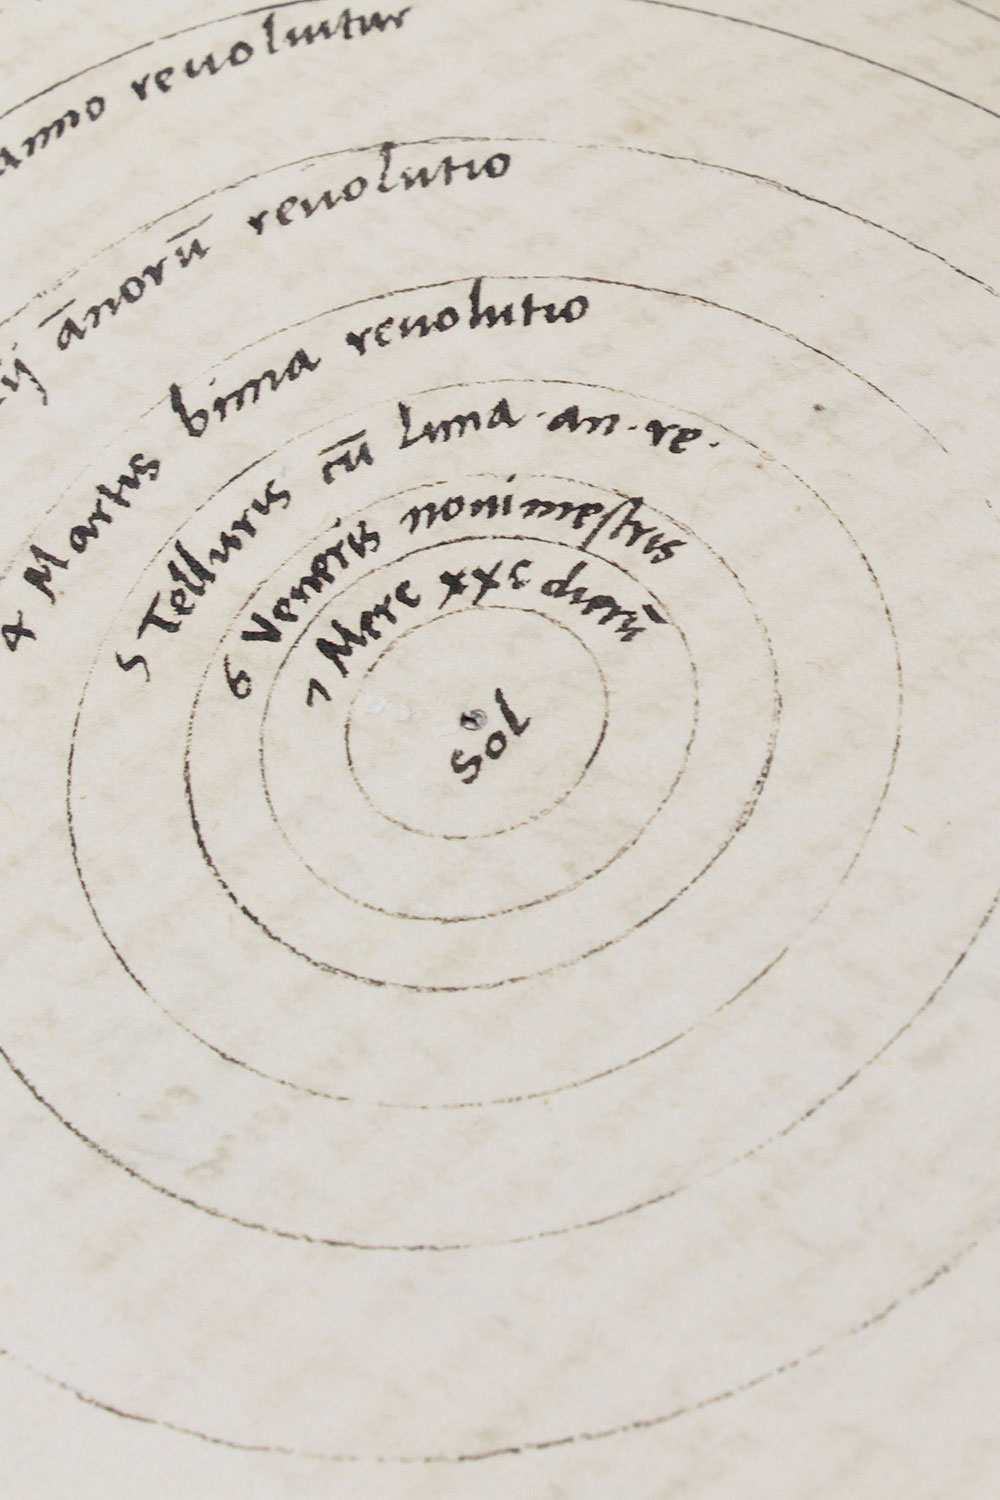 anno reuoluitur
ij ānorū reuolutio
4 Martis bima reuolutio
5 Telluris cū Luna · an · re ·
6 Veneris nonimestris
7 Merc xxc dierū
Sol